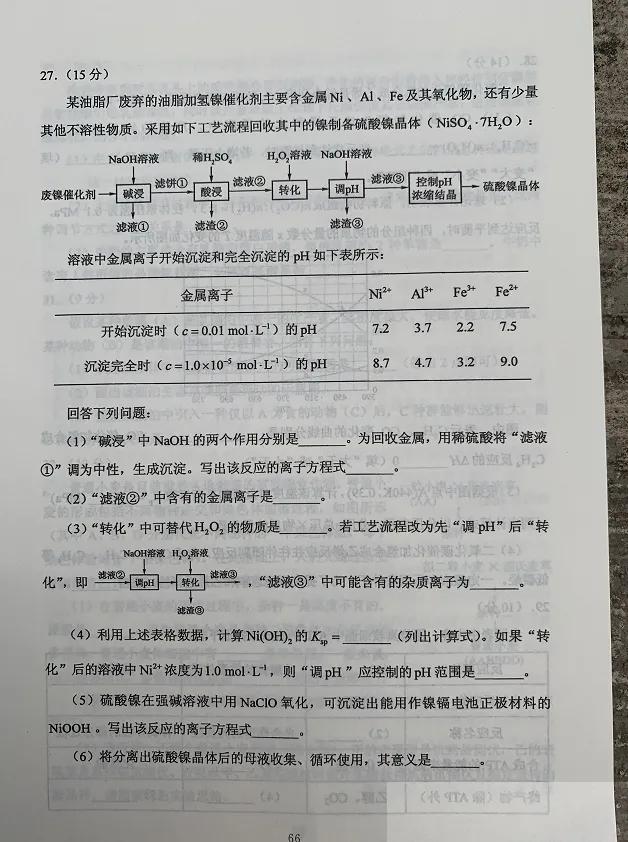 27.（15 分）
某油脂厂废弃的油脂加氢镍催化剂主要含金属 Ni 、 Al 、 Fe 及其氧化物，还有少量
其他不溶性物质。采用如下工艺流程回收其中的镍制备硫酸镍晶体（ NiSO₄ ·7H₂O ）：
NaOH溶液 稀H₂SO₄ H₂O₂溶液 NaOH溶液
废镍催化剂 碱浸 滤饼① 酸浸 滤液② 转化 调pH 滤液③ 控制pH 浓缩结晶 硫酸镍晶体
滤液① 滤渣② 滤渣③
溶液中金属离子开始沉淀和完全沉淀的 pH 如下表所示：
金属离子 Ni²⁺ Al³⁺ Fe³⁺ Fe²⁺
开始沉淀时（ c = 0.01 mol·L⁻¹ ）的 pH 7.2 3.7 2.2 7.5
沉淀完全时（ c = 1.0×10⁻⁵ mol·L⁻¹ ）的 pH 8.7 4.7 3.2 9.0
回答下列问题：
（1）“碱浸”中 NaOH 的两个作用分别是______。为回收金属，用稀硫酸将“滤液
①”调为中性，生成沉淀。写出该反应的离子方程式______。
（2）“滤液②”中含有的金属离子是______。
（3）“转化”中可替代 H₂O₂ 的物质是______。若工艺流程改为先“调 pH”后“转
NaOH溶液 H₂O₂溶液
化”，即 滤液② 调pH 转化 滤液③ ，“滤液③”中可能含有的杂质离子为______。
滤渣③
（4）利用上述表格数据，计算 Ni(OH)₂ 的 Ksp = ______（列出计算式）。如果“转
化”后的溶液中 Ni²⁺ 浓度为 1.0 mol·L⁻¹ ，则“调 pH ”应控制的 pH 范围是______。
（5）硫酸镍在强碱溶液中用 NaClO 氧化，可沉淀出能用作镍镉电池正极材料的
NiOOH 。写出该反应的离子方程式______。
（6）将分离出硫酸镍晶体后的母液收集、循环使用，其意义是______。
66